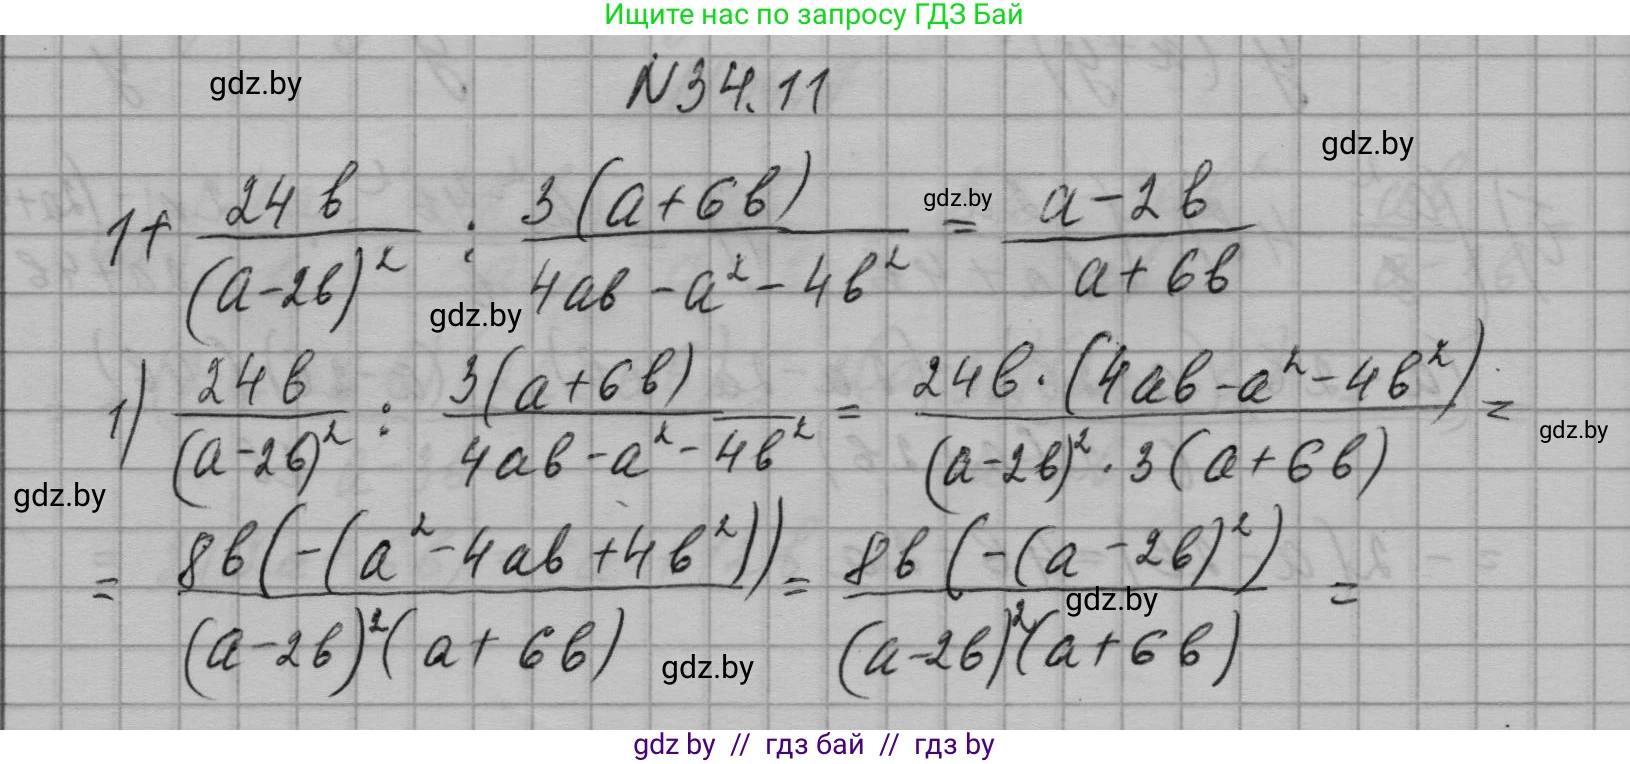 Ищите нас по запросу ГДЗ Бай
gdz.by
N34.11
gdz.by
1+ 24b/(a-2b)² : 3(a+6b)/(4ab-a²-4b²) = (a-2b)/(a+6b)
gdz.by
gdz.by
1) 24b/(a-2b)² : 3(a+6b)/(4ab-a²-4b²) = 24b·(4ab-a²-4b²)/((a-2b)²·3(a+6b)) =
gdz.by
gdz.by
= 8b(-(a²-4ab+4b²))/((a-2b)²(a+6b)) = 8b(-(a-2b)²)/((a-2b)²(a+6b)) =
gdz.by
gdz.by
gdz by // гдз бай // гдз by